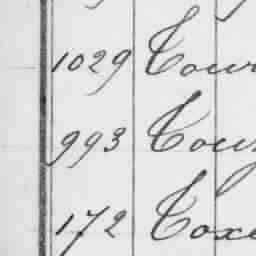 1029 Tour
993 Tou
172 Toxe